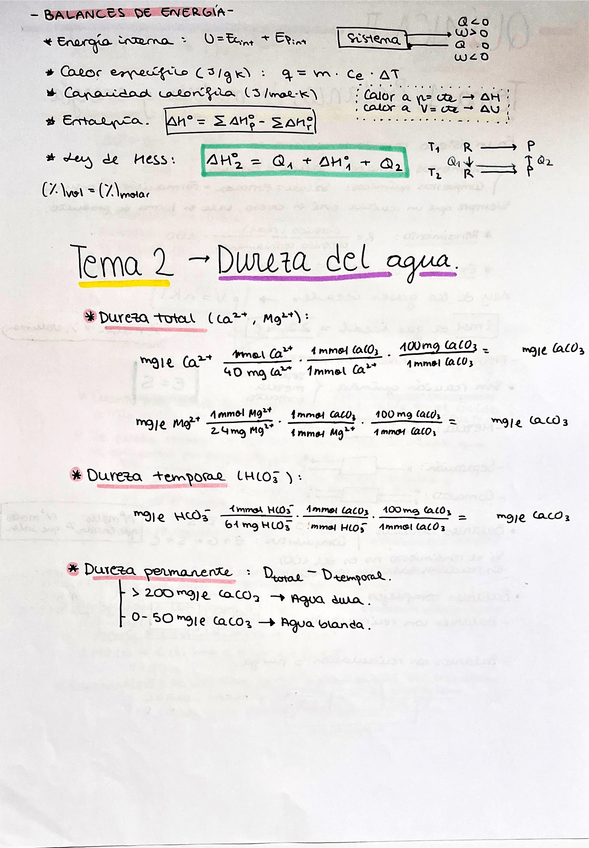 - BALANCES DE ENERGÍA -
* Energía interna : U = Ecint + Epint
Sistema
Q < 0
W > 0
Q > 0
W < 0
* Calor específico (J/gK) : q = m · ce · ΔT
* Capacidad calorífica (J/mol·K)
Calor a p = cte → ΔH
calor a V = cte → ΔU
* Entalpía. ΔHº = Σ ΔHºp - Σ ΔHºr
* Ley de Hess: ΔHº2 = Q1 + ΔHº1 + Q2
T1 R → P
Q1 ↓ ↑ Q2
T2 R → P
(%)vol = (%)molar
Tema 2 → Dureza del agua.
* Dureza total (Ca²⁺, Mg²⁺):
mg/e Ca²⁺ 1mmol Ca²⁺/40 mg Ca²⁺ · 1mmol CaCO3/1mmol Ca²⁺ · 100mg CaCO3/1mmol CaCO3 = mg/e CaCO3
mg/e Mg²⁺ 1mmol Mg²⁺/24mg Mg²⁺ · 1mmol CaCO3/1mmol Mg²⁺ · 100 mg CaCO3/1mmol CaCO3 = mg/e CaCO3
* Dureza temporal (HCO3⁻):
mg/e HCO3⁻ 1mmol HCO3⁻/61mg HCO3⁻ · 1mmol CaCO3/mmol HCO3⁻ · 100mg CaCO3/1mmol CaCO3 = mg/e CaCO3
* Dureza permanente : Dtotal - Dtemporal.
> 200 mg/e CaCO3 → Agua dura.
0-50 mg/e CaCO3 → Agua blanda.